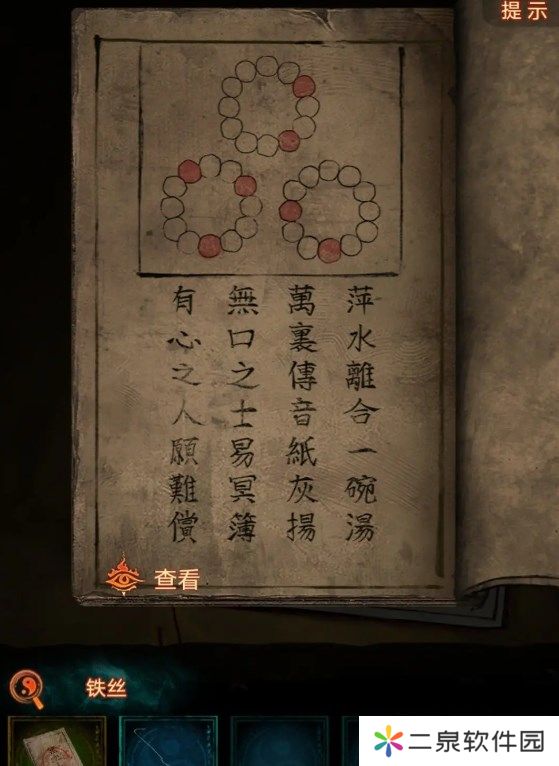 提示
萍水離合一碗湯
萬裏傳音紙灰揚
無口之士易冥簿
有心之人願難償
查看
铁丝
二泉软件园